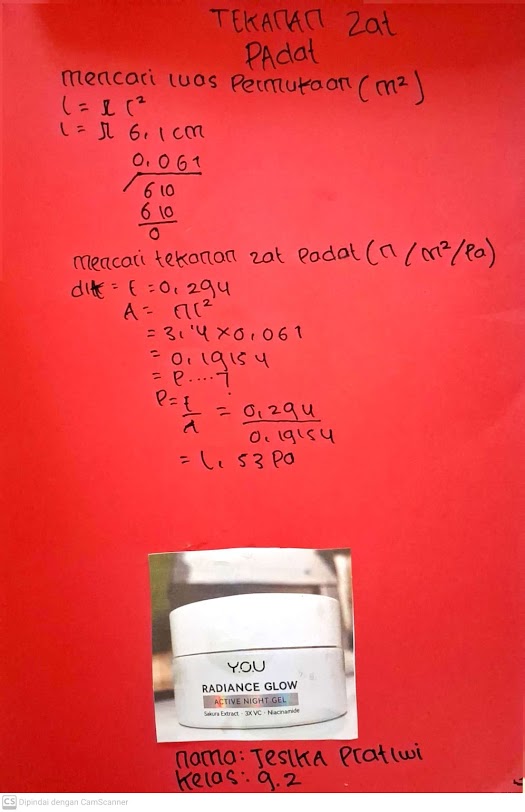 TEKANAN Zat
PAdat
mencari luas Permukaan (m²)
l = π r²
l = π 6,1 cm
0,061
610
610
0
mencari tekanan zat Padat (n/m²/Pa)
dik = F = 0,294
A = πr²
= 3,14 × 0,061
= 0,19154
= P....?
P = F/A = 0,294/0,19154
= 1,53 Pa
Y.O.U
RADIANCE GLOW
ACTIVE NIGHT GEL
Sakura Extract · 3X VC · Niacinamide
nama: Jesika Pratiwi
kelas: 9.2
CS Dipindai dengan CamScanner